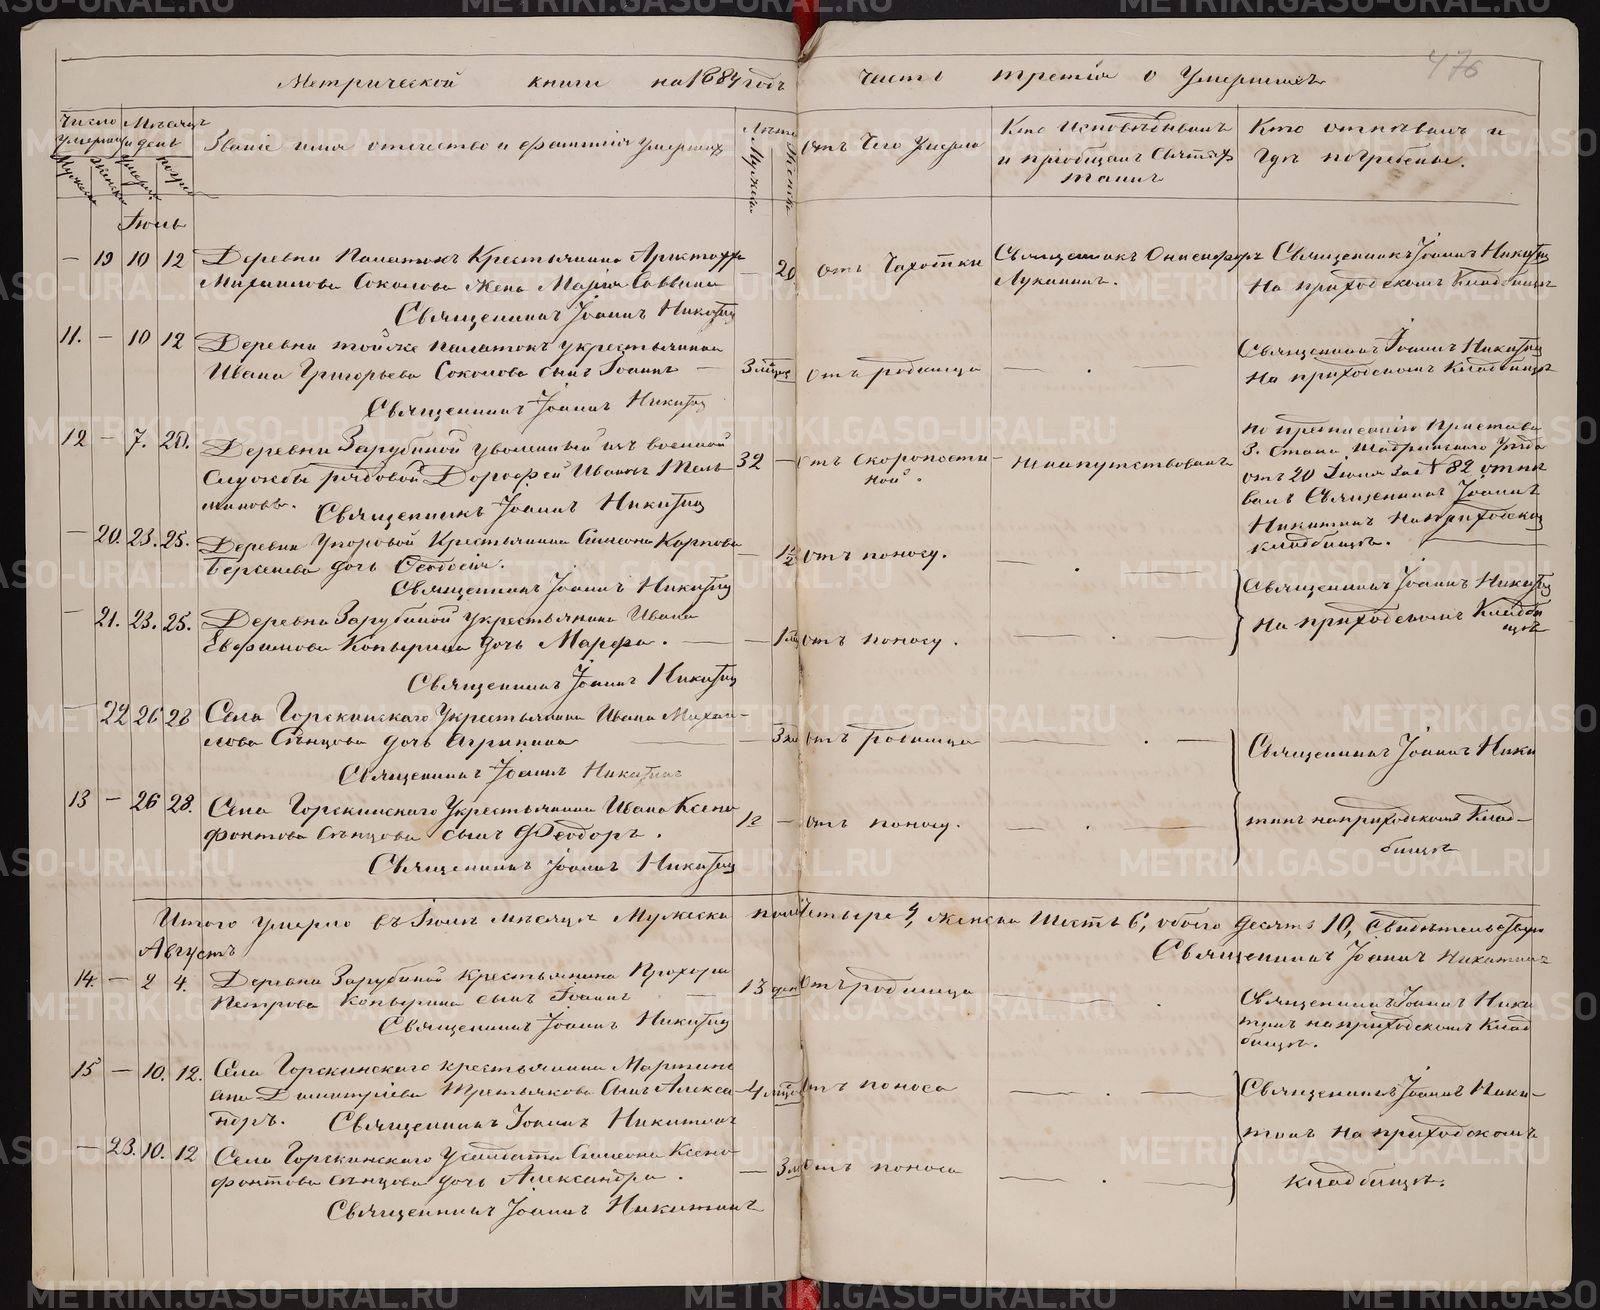 476
Метрической книги на 1884 годъ часть третія о Умершихъ
Число Умершихъ
Мѣсяцъ и день
Званіе имя отчество и фамилія умершихъ
Лѣта
отъ Чего Умерли
Кто Исповѣдывалъ и пріобщалъ Святыхъ таинъ
Кто отпѣвалъ и Гдѣ погребены.
Мужеска Женска Мужеска Женска
Іюль
— 19 10 12 Деревни Палатокъ Крестьянина
Михаилова Соколова жена Марія Саввина — 20 отъ Чахотки
Священникъ Онисифоръ
Лукиныхъ.
Священникъ Іоаннъ Никитинъ
На приходскомъ Кладбищѣ
Священникъ Іоаннъ Никитинъ
11. — 10 12 Деревни тойже Палатокъ у крестьянина
Ивана Григорьева Соколова сынъ Іоаннъ — 3 мѣсяц отъ родимца — . —
Священникъ Іоаннъ Никитинъ
На приходскомъ Кладбищѣ
Священникъ Іоаннъ Никитинъ
12 — 7. 20. Деревни Зарубиной уволенный изъ военной
Службы рядовой Дорофей Ивановъ
32 — отъ скоропостиж-
ной.
Не напутствованъ
По предписанію Пристава
3. Стана Шадринскаго Уѣзда
отъ 20 Іюля за № 82 отпѣ
валъ Священникъ Іоаннъ
Никитинъ На приходскомъ
кладбищѣ.
Священникъ Іоаннъ Никитинъ
— 20. 23. 25. Деревни Упоровой Крестьянина Симеона Карпова
Берсенева дочь Ѳеодосія. — 1/2 отъ поносу. — . —
Священникъ Іоаннъ Никитинъ
— 21. 23. 25. Деревни Зарубиной у крестьянина Ивана
Евфимова Копырина дочь Марфа. — отъ поносу. — . —
Священникъ Іоаннъ Никитинъ
На приходскомъ Кладби
щѣ
Священникъ Іоаннъ Никитинъ
— 22 26 28 Села Горскинскаго У крестьянина Ивана Михаи-
лова Сѣнцова дочь Агрипина — 3 отъ родимца — . —
Священникъ Іоаннъ Никитинъ
13 — 26 28. Села Горскинскаго У крестьянина Ивана Ксено
фонтова Сѣнцова сынъ Ѳеодоръ. — отъ поносу. — . —
Священникъ Іоаннъ Ники
тинъ на приходскомъ Клад-
бищѣ
Священникъ Іоаннъ Никитинъ
Итого умерло въ Іюлѣ мѣсяцѣ Мужеска пола Четыре 4, женска Шесть 6, обоего десять 10, Свидѣтельствую
Священникъ Іоаннъ Никитинъ
Августъ
14. — 2 4. Деревни Зарубиной Крестьянина Прохора
Петрова Копырина сынъ Іоаннъ — 13 дней Отъ родимца — .
Священникъ Іоаннъ Ники
тинъ на приходскомъ Клад
бищѣ.
Священникъ Іоаннъ Никитинъ
15 — 10. 12. Села Горскинскаго крестьянина Мартини
ана Димитріева Третьякова Сынъ Алекса
ндръ. 4 отъ поноса — . —
Священникъ Іоаннъ Никитинъ
— 23. 10. 12 Села Горскинскаго У солдата Симеона Ксено
фонтова Сѣнцова дочь Александра. — 3 отъ поноса — . —
Священникъ Іоаннъ Ники-
тинъ На приходскомъ
Кладбищѣ.
Священникъ Іоаннъ Никитинъ
METRIKI.GASO-URAL.RU